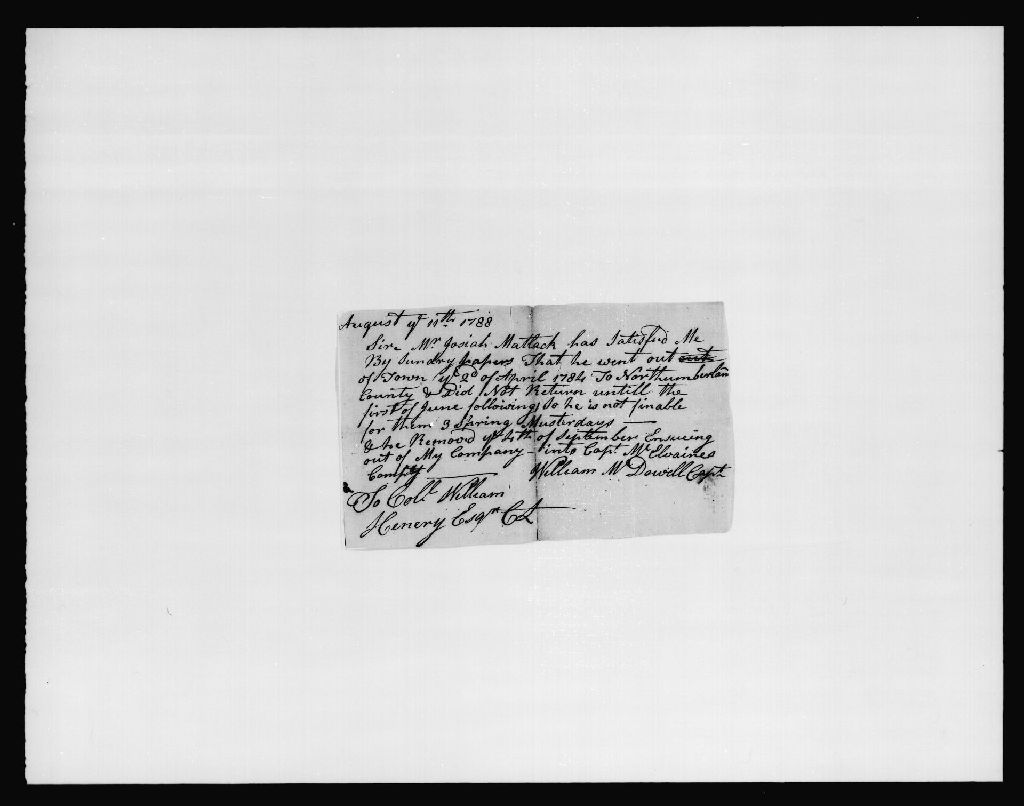 August ye 11th 1788
Sire Mr Josiah Matlack has Satisfied Me
By Sundry papers That he went out out
of Town ye 2d of April 1784 To Northumberland
County & Did Not Return untill the
first of June following So he is not finable
for them 3 Spring Musterdays
& he Remoovd ye 4th of September Ensueing
out of My Company - into Capt Mc Elvaines
Compy
William Mc Dowell Capt
To Coll William
Henery Esqr CL